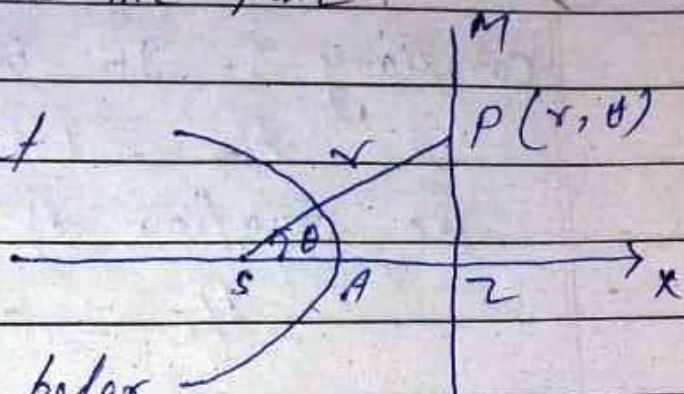 M
P (r, θ)
r
θ
S A Z x
polar